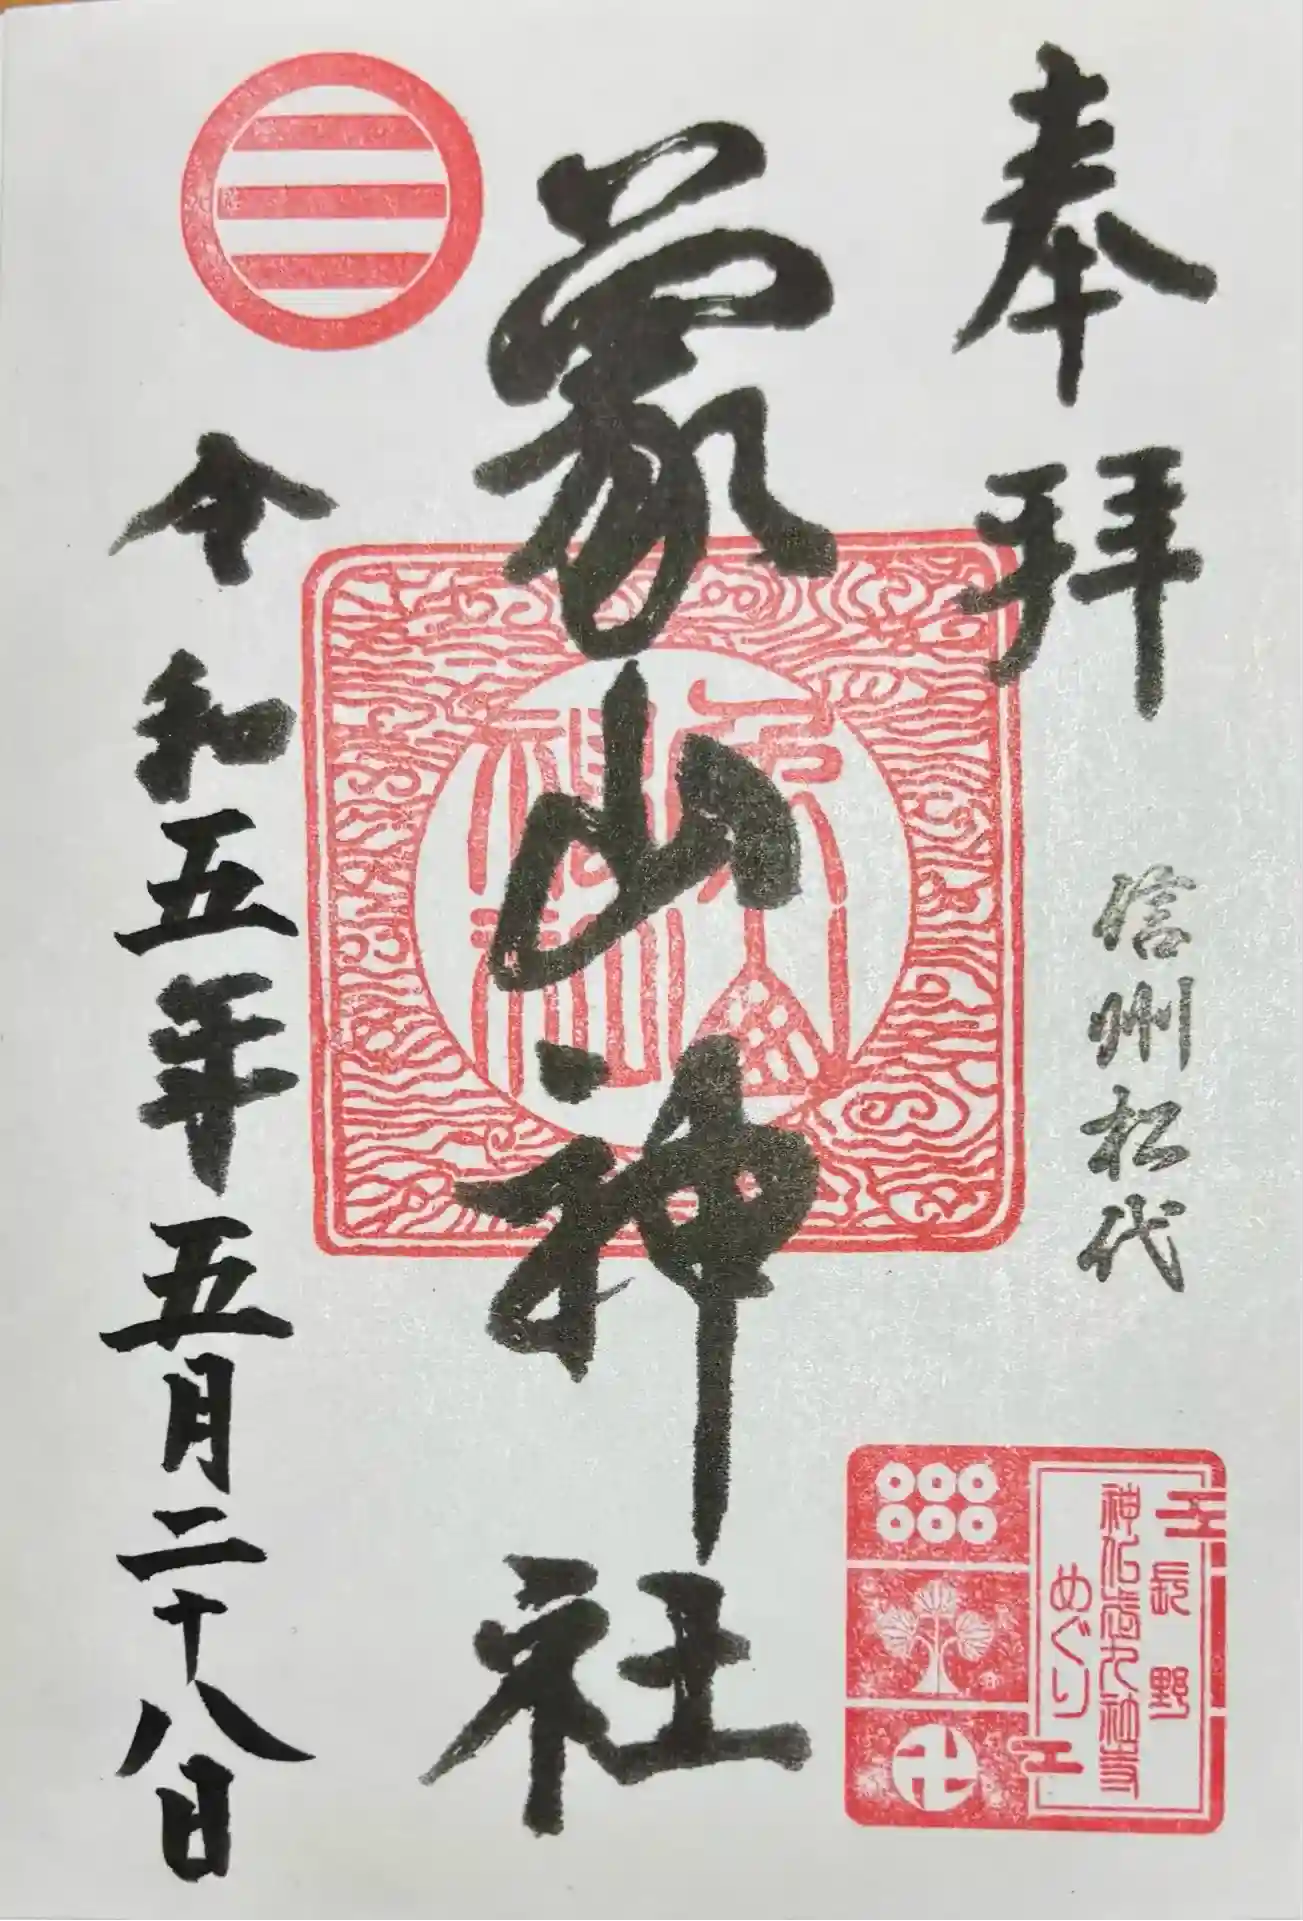 奉拝
信州松代
象山神社
令和五年五月二十八日
長野
神仏 九社寺
めぐり